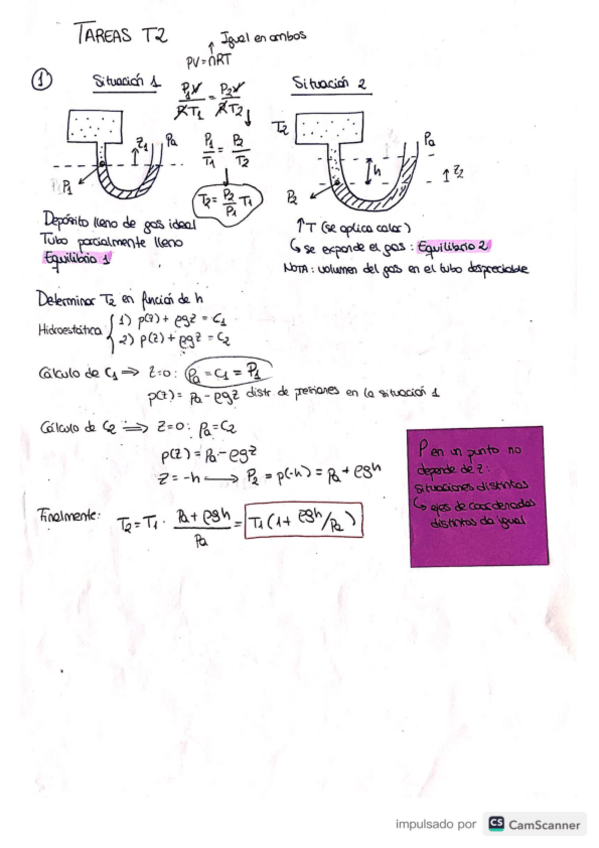 TAREAS T2
Igual en ambos
PV = nRT
①
Situación 1
P1V/RT1 = P2V/RT2
Situación 2
P1/T1 = P2/T2
T2 = P2/P1 T1
z1
Pa
P1
T2
Pa
h
z2
P2
Depósito lleno de gas ideal
Tubo parcialmente lleno
Equilibrio 1
↑T (se aplica calor)
↳ se expande el gas: Equilibrio 2
NOTA: volumen del gas en el tubo despreciable
Determinar T2 en función de h
Hidroestática { 1) p(z) + ρgz = C1
2) p(z) + ρgz = C2
Cálculo de C1 ⇒ z=0: Pa = C1 = P1
p(z) = Pa - ρgz distr de presiones en la situación 1
Cálculo de C2 ⇒ z=0: Pa = C2
p(z) = Pa - ρgz
z = -h → P2 = p(-h) = Pa + ρgh
Finalmente: T2 = T1 · Pa + ρgh/Pa = T1 (1 + ρgh/Pa)
P en un punto no
depende de z:
situaciones distintas
↳ ejes de coordenadas
distintos da igual
impulsado por CS CamScanner